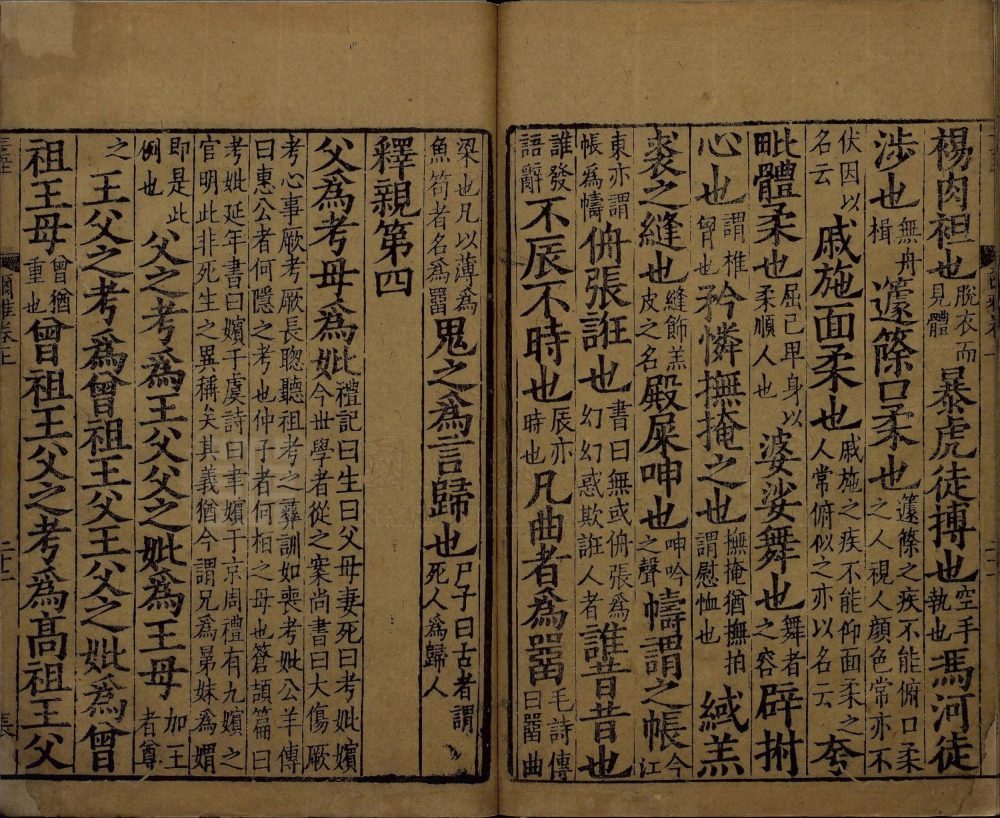 裼肉袒也脫衣而見體暴虎徒搏也空手執也馮河徒
涉也無舟楫籧篨口柔也籧篨之疾不能俯口柔之人視人顔色常亦不
伏因以名云戚施面柔也戚施之疾不能仰面柔之人常俯似之亦以名云夸
毗體柔也屈己卑身以柔順人也婆娑舞也舞者之容辟拊
心也謂椎胷也矜憐撫掩之也撫掩猶撫拍謂慰恤也緎羔
裘之縫也縫飾羔皮之名殿屎呻也呻吟之聲幬謂之帳今江
東亦謂帳爲幬侜張誑也書曰無或侜張爲幻幻惑欺誑人者誰昔昔也
誰發語辭不辰不時也辰亦時也凡曲者爲罶毛詩傳曰罶曲
梁也凡以薄爲魚笱者名爲罶鬼之爲言歸也尸子曰古者謂死人爲歸人
釋親第四
父爲考母爲妣禮記曰生曰父母妻死曰考妣嬪今世學者從之案尚書曰大傷厥
考心事厥考厥長聦聽祖考之彞訓如喪考妣公羊傳曰惠公者何隱之考也仲子者何桓之母也蒼頡篇曰
考妣延年書曰嬪于虞詩曰聿嬪于京周禮有九嬪之官明此非死生之異稱矣其義猶今謂兄爲晜妹爲媦
即是此例也父之考爲王父父之妣爲王母加王者尊
之王父之考爲曾祖王父王父之妣爲曾
祖王母曾猶重也曾祖王父之考爲髙祖王父